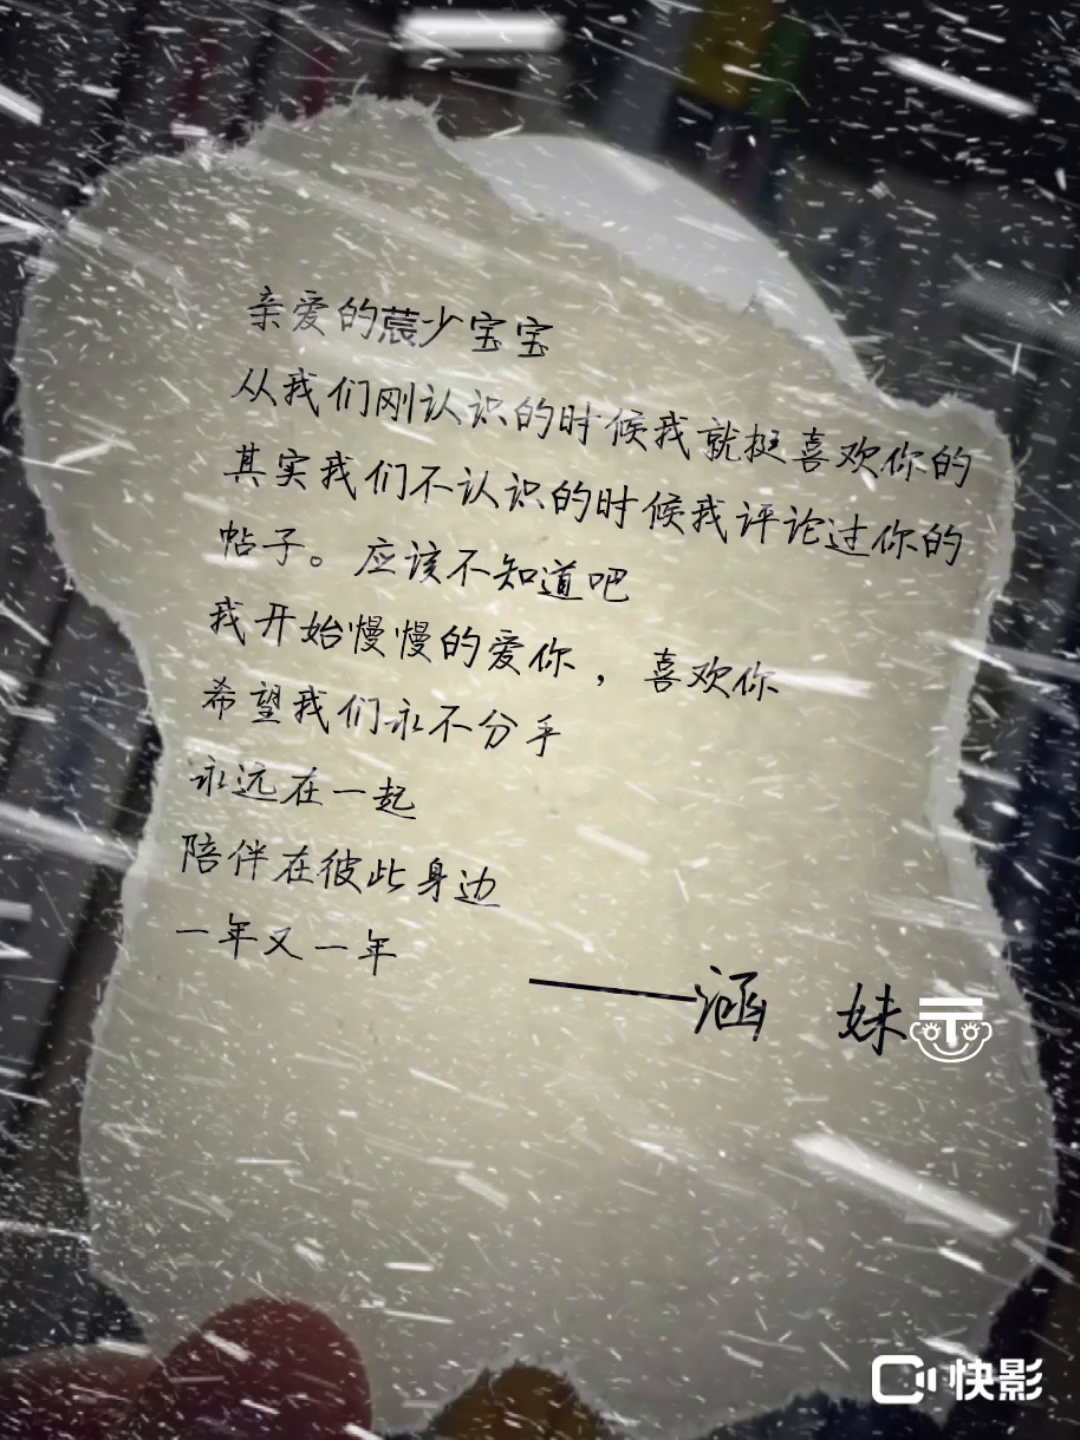 亲爱的蔉少宝宝
从我们刚认识的时候我就挺喜欢你的
其实我们不认识的时候我评论过你的
帖子。应该不知道吧
我开始慢慢的爱你，喜欢你
希望我们永不分手
永远在一起
陪伴在彼此身边
一年又一年
——涵 妹
快影